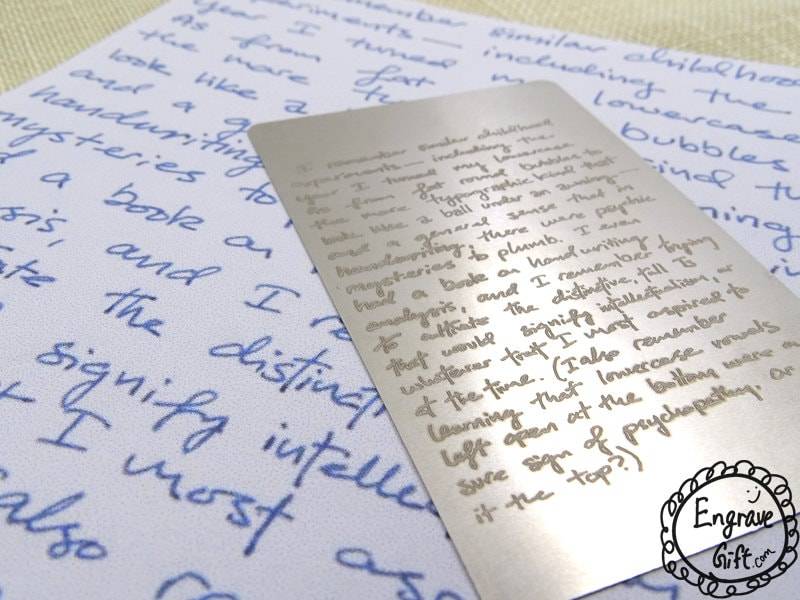 member similar childhood
periments — including the
year I turned m lowercase
As from fat bubbles
the more ty kind th
look like a ning
and a g
handwriting
mysteries to
d a book on
sis, and I re
ate the distinct
signify intellec
t I most as
also re
I remember similar childhood
experiments — including the
year I turned my lowercase
As from fat round bubbles to
the more typographic kind that
look like a ball under an awning —
and a general sense that in
handwriting, there were psychic
mysteries to plumb. I even
had a book on handwriting
analysis, and I remember trying
to cultivate the distinctive, tall Is
that would signify intellectualism, or
whatever trait I most aspired to
at the time. (I also remember
learning that lowercase vowels
left open at the bottom were a
sure sign of psychopathy. Or
it the top?)
Engrave
Gift.com